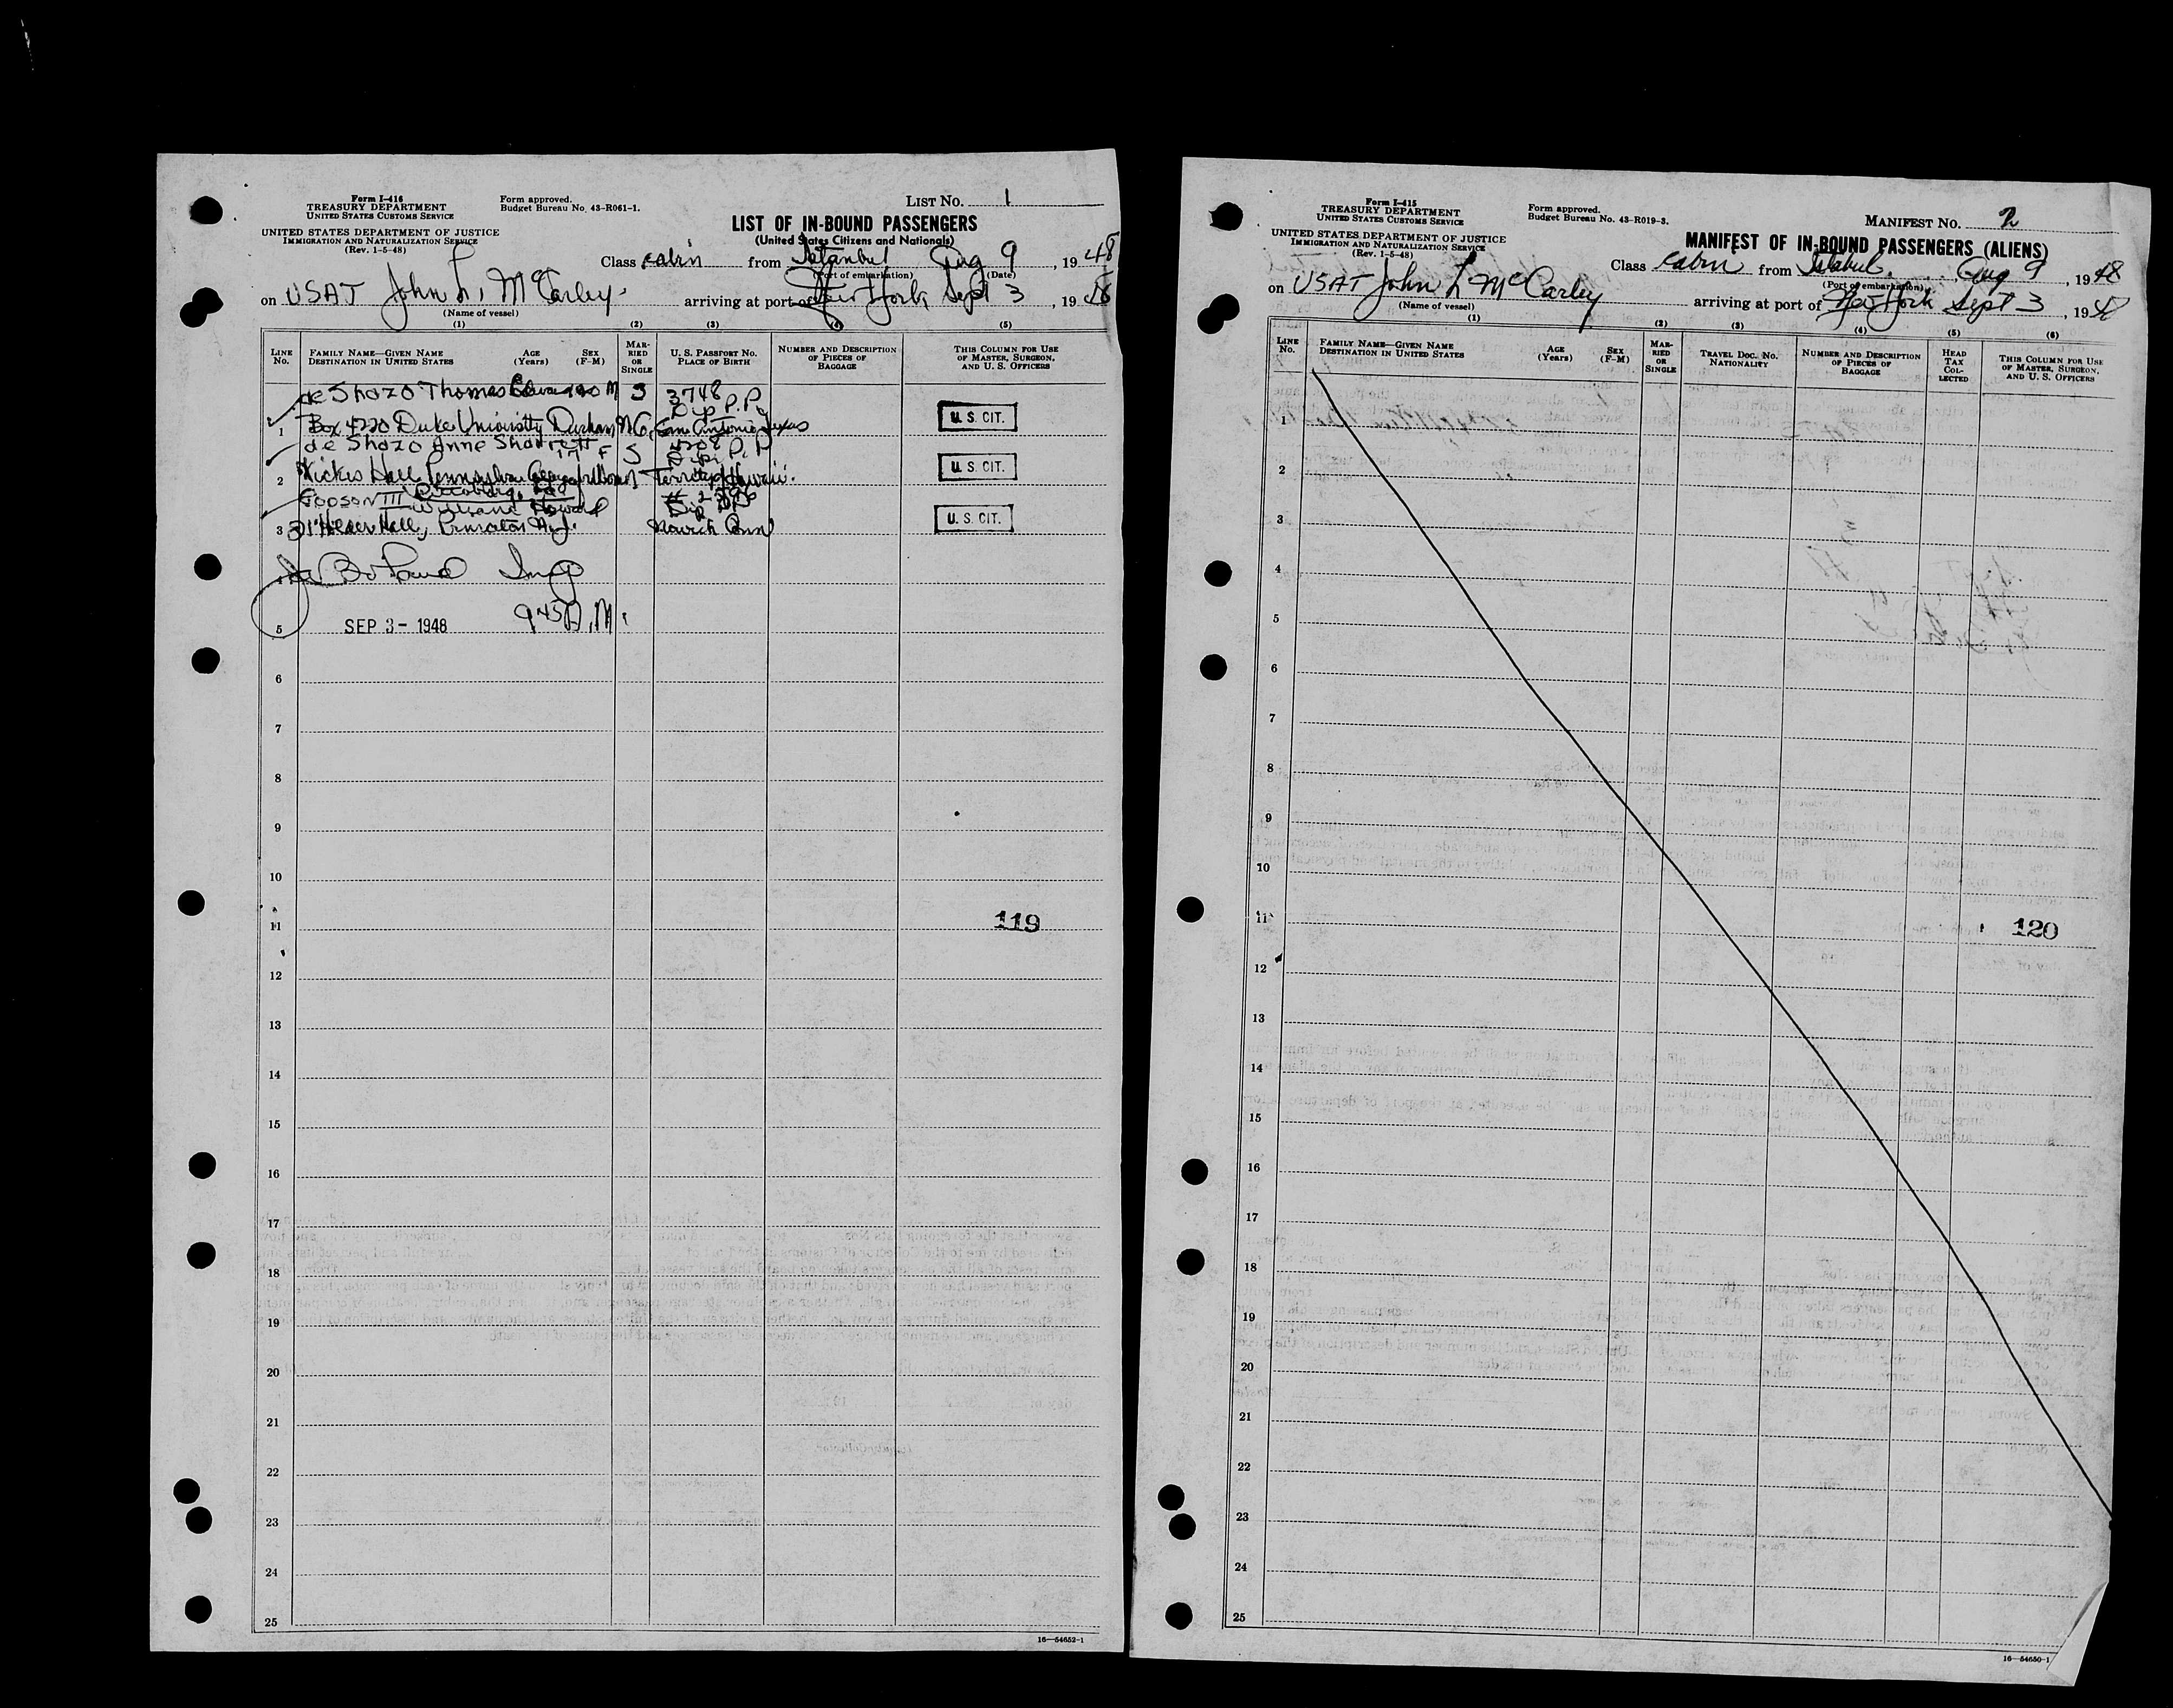 Form I-416
TREASURY DEPARTMENT
UNITED STATES CUSTOMS SERVICE
Form approved.
Budget Bureau No. 43-R061-1.
LIST NO. 1
UNITED STATES DEPARTMENT OF JUSTICE
IMMIGRATION AND NATURALIZATION SERVICE
(Rev. 1-5-48)
LIST OF IN-BOUND PASSENGERS
(United States Citizens and Nationals)
Class cabin from Istanbul Aug 9, 1948
(Port of embarkation) (Date)
on USAT John L. McCarley. arriving at port of New York Sept 3, 1948
(Name of vessel)
(1) (2) (3) (4) (5)
LINE No. FAMILY NAME—GIVEN NAME DESTINATION IN UNITED STATES AGE (Years) SEX (F-M) MARRIED OR SINGLE U. S. PASSPORT NO. PLACE OF BIRTH NUMBER AND DESCRIPTION OF PIECES OF BAGGAGE THIS COLUMN FOR USE OF MASTER, SURGEON, AND U. S. OFFICERS
de Shazo Thomas Edward M S 3748
Dip P.P
1 Box 4220 Duke University Durham N.C. San Antonio Texas U. S. CIT.
de Shazo Anne Sharrett 17 F S 4208
Dip P.P
2 Hall Pennsylvania College for Women Territory Hawaii. U. S. CIT.
Pittsburg, Pa
III William Howard
Dip PP
3 Holder Hall, Princeton N.J. Norwich Conn U. S. CIT.
4 Insp
5 SEP 3 - 1948 9 45 A.M.
6
7
8
9
10
11 119
12
13
14
15
16
17
18
19
20
21
22
23
24
25
16—54652-1
Form I-415
TREASURY DEPARTMENT
UNITED STATES CUSTOMS SERVICE
Form approved.
Budget Bureau No. 43-R019-3.
MANIFEST NO. 2
UNITED STATES DEPARTMENT OF JUSTICE
IMMIGRATION AND NATURALIZATION SERVICE
(Rev. 1-5-48)
MANIFEST OF IN-BOUND PASSENGERS (ALIENS)
Class cabin from Istabul. Aug 9, 1948
(Port of embarkation)
on USAT John L McCarley arriving at port of New York Sept 3, 1948
(Name of vessel)
(1) (2) (3) (4) (5) (6)
LINE No. FAMILY NAME—GIVEN NAME DESTINATION IN UNITED STATES AGE (Years) SEX (F-M) MARRIED OR SINGLE TRAVEL DOC. NO. NATIONALITY NUMBER AND DESCRIPTION OF PIECES OF BAGGAGE HEAD TAX COLLECTED THIS COLUMN FOR USE OF MASTER, SURGEON, AND U. S. OFFICERS
1
2
3
4
5
6
7
8
9
10
11 120
12
13
14
15
16
17
18
19
20
21
22
23
24
25
16—54650-1